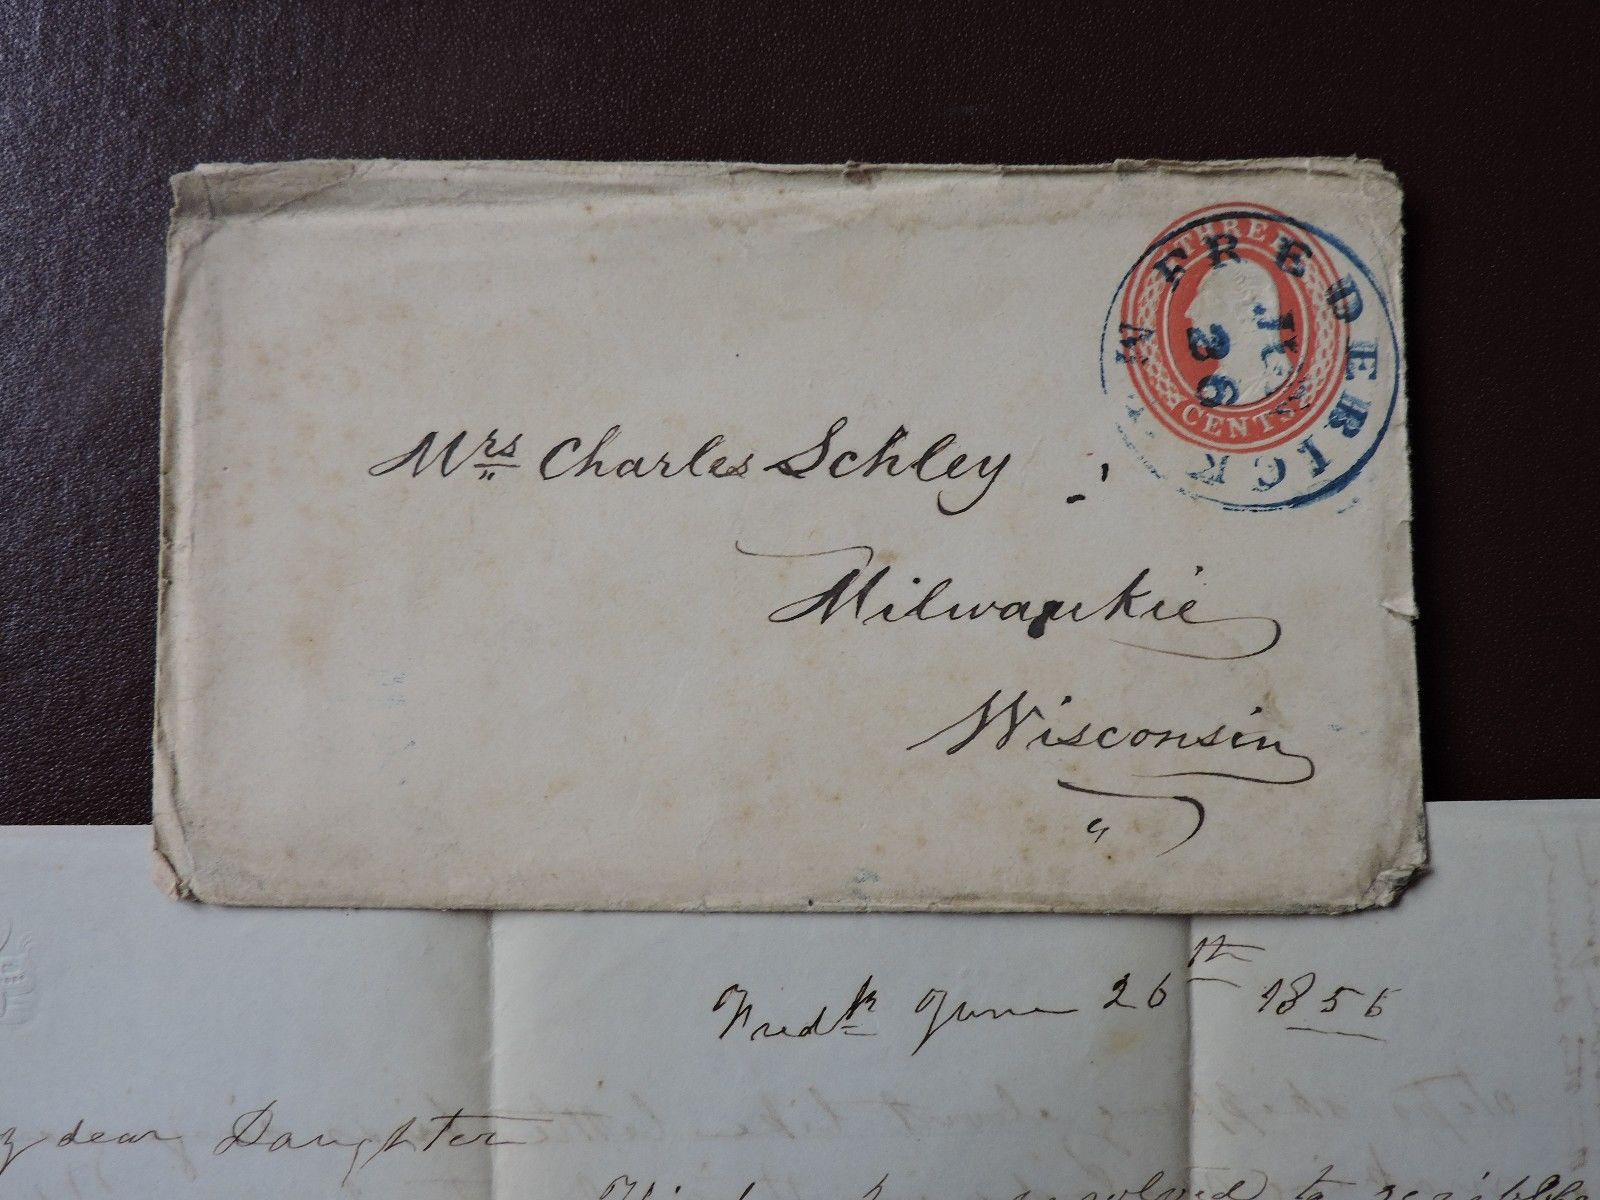 THREE
CENTS
FREDERICK
M
26
Mrs Charles Schley
Milwaukie
Wisconsin
Fredk June 26th 1856
dear Daughter
resolved to scribble